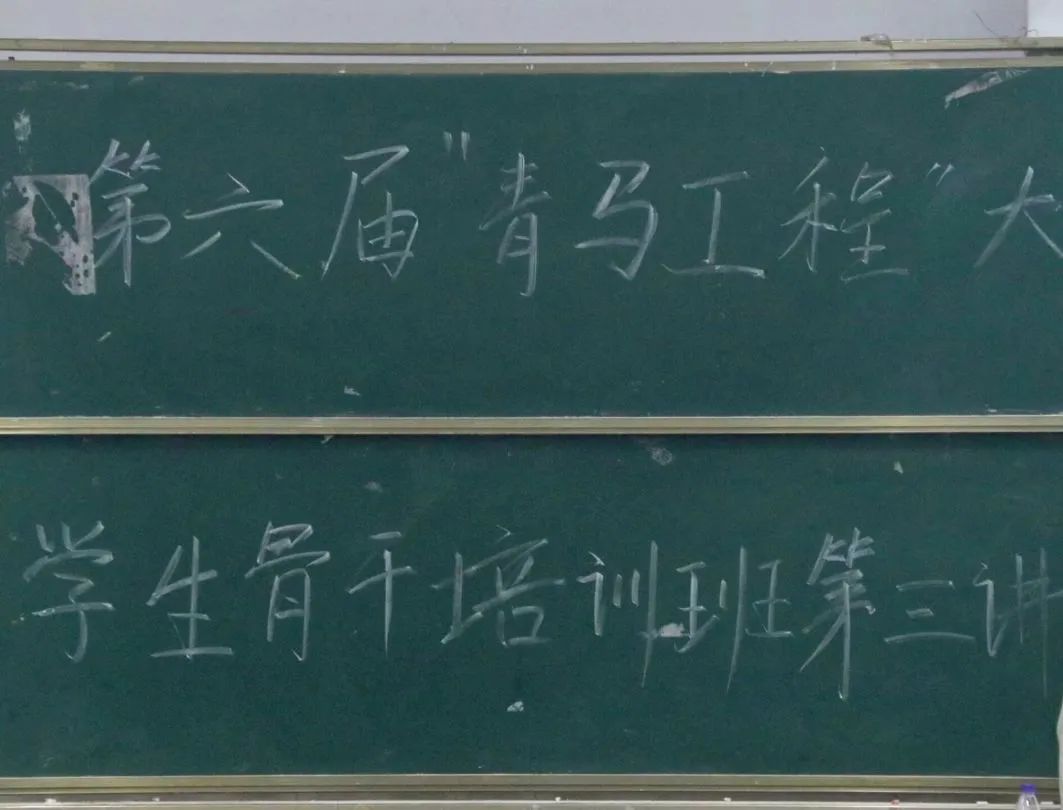 第六届"青马工程"大
学生骨干培训班第三讲